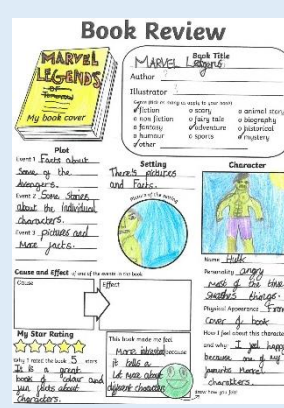 Book Review
MARVEL
LEGENDS
OF
Tomorrow
My book cover
Book Title
MARVEL Legends
Author ?
Illustrator ?
Genre (tick as many as apply to your book)
fiction
scary
animal story
non fiction
fairy tale
biography
fantasy
adventure
historical
humour
sports
mystery
other
Plot
Event 1 Facts about
Some of the
Avengers.
Event 2 Some Stories
about the individual
characters.
Event 3 pictures and
More facts.
Setting
There's pictures
and Facts.
Picture of the setting
Character
Name Hulk
Personality angry
Most of the time
Smashes things.
Physical Appearance From
cover of book
How I feel about this character
and why I feel happy
because one of my
favourite Marvel
Characters.
Cause and Effect of one of the events in the book
Cause
Effect
My Star Rating
Why I rated the book 5 stars
It is a great
book of colour and
fun facts about
Characters.
This book made me feel
More interested because
it tells a
Lot more about
different characters
how you feel